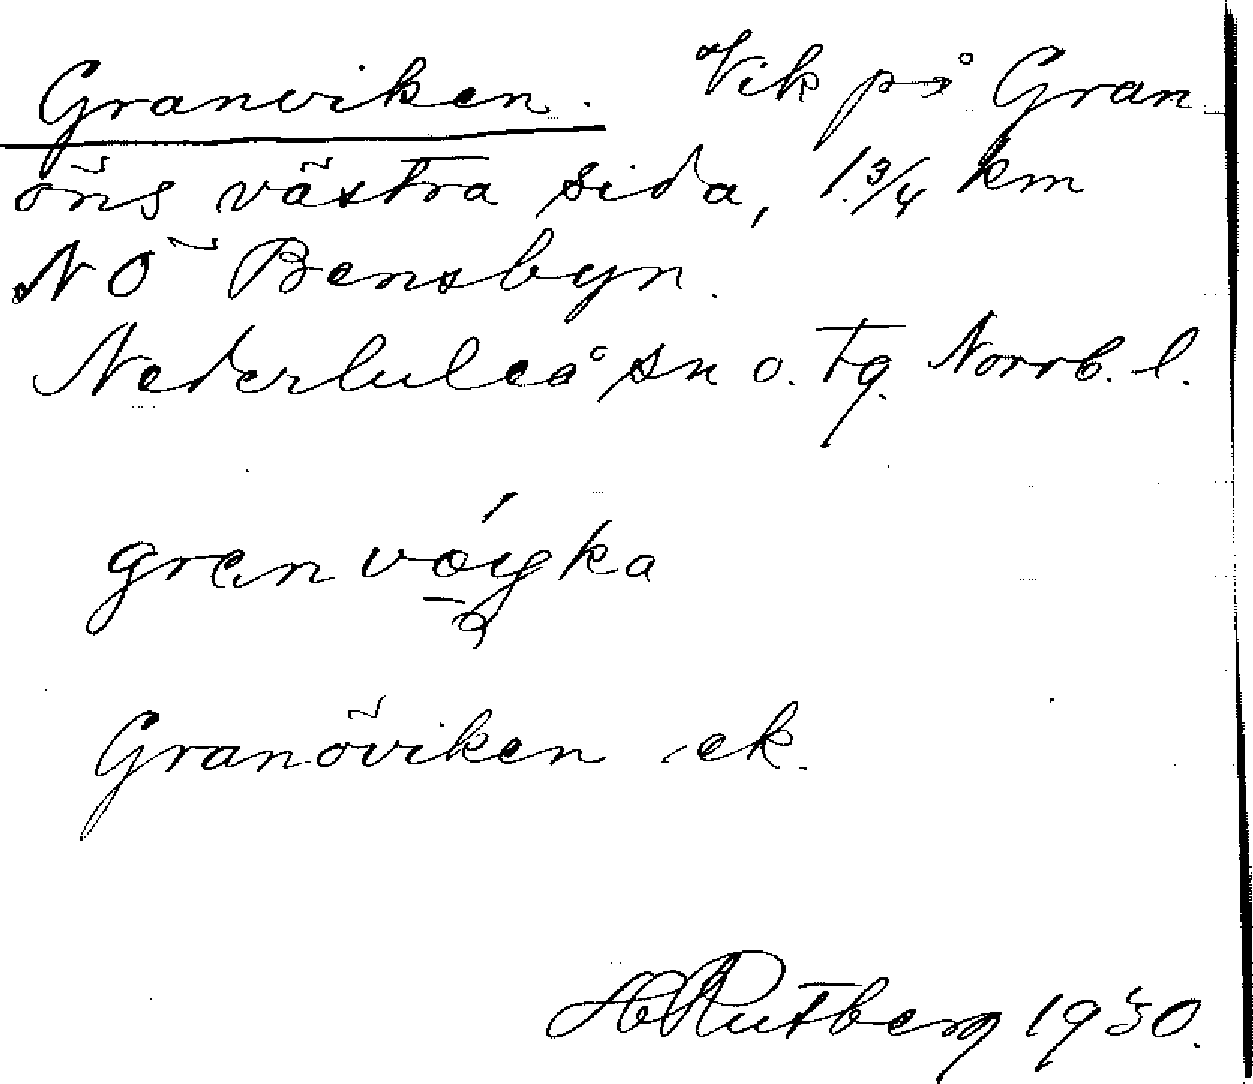 Granviken. Vik på Gran
öns västra sida, 1.3/4 km
NÖ Bensbyn.
Nederluleå sn o. tg. Norrb. l.
Granöviken ek.
H Rutberg 1930.